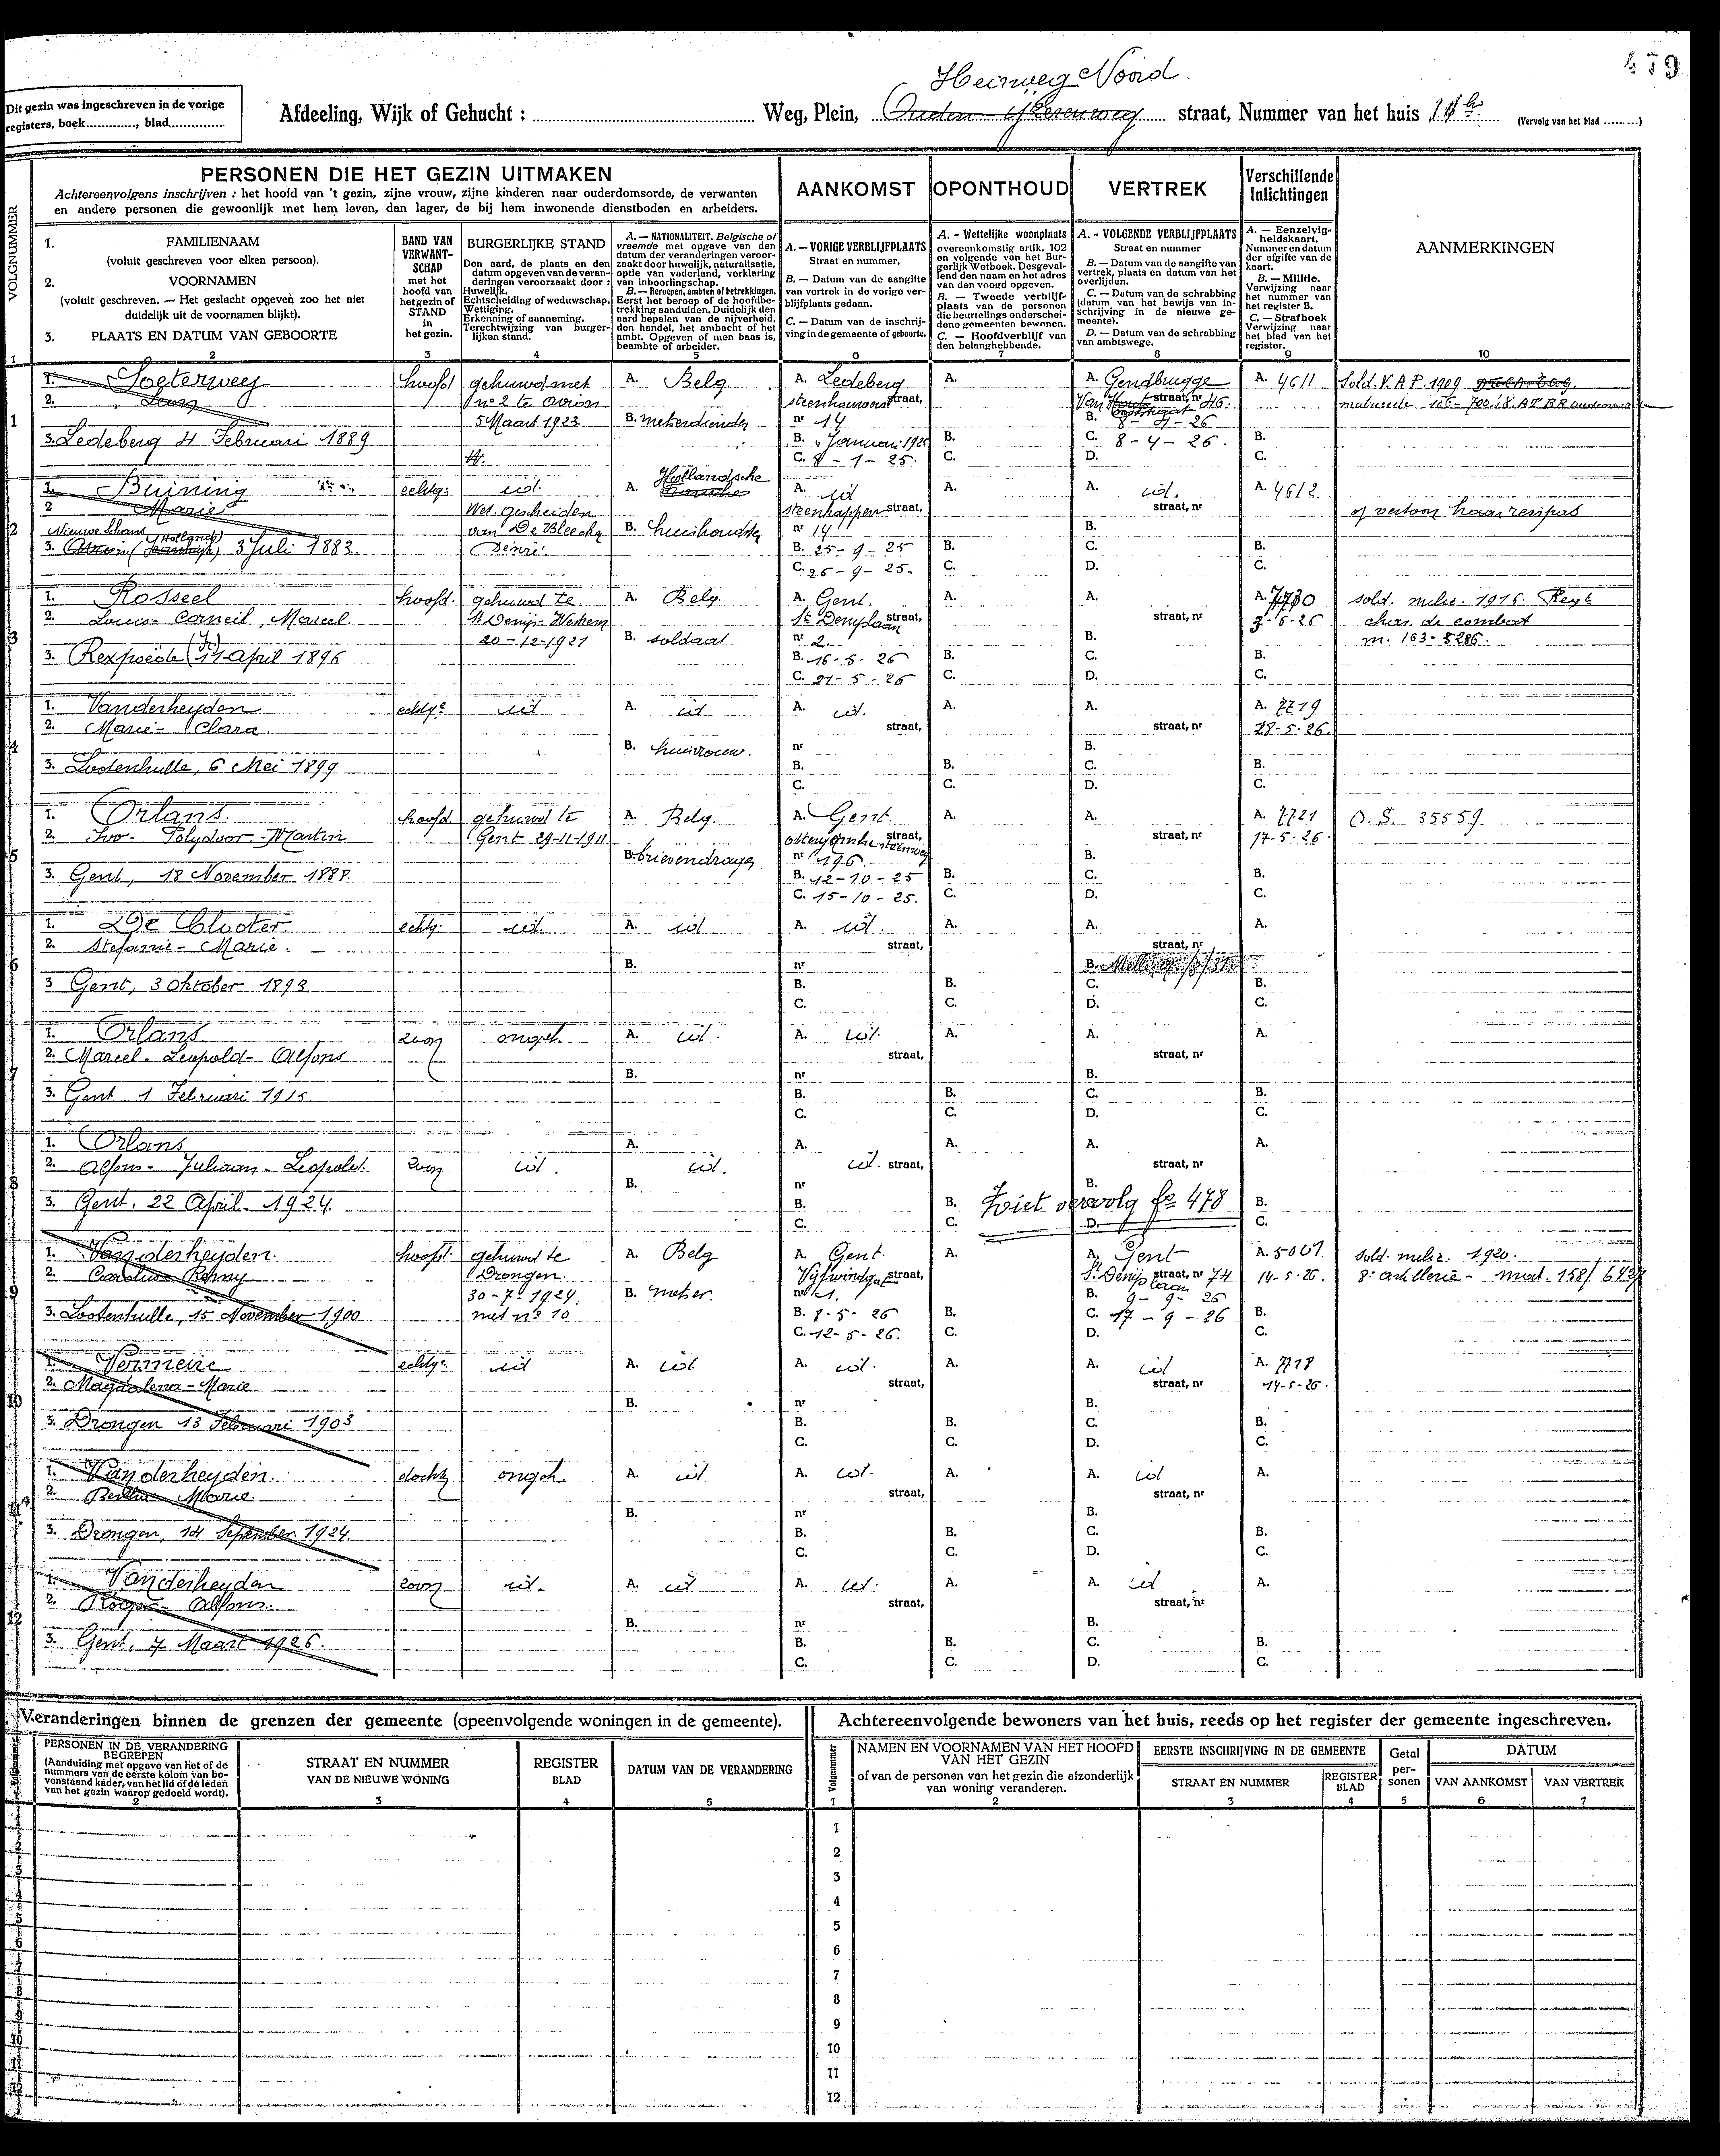 479
Heirweg Noord
Dit gezin was ingeschreven in de vorige
registers, boek............, blad.............
Afdeeling, Wijk of Gehucht : ........ Weg, Plein, ........ straat, Nummer van het huis
(Vervolg van het blad .........)
PERSONEN DIE HET GEZIN UITMAKEN
Achtereenvolgens inschrijven : het hoofd van 't gezin, zijne vrouw, zijne kinderen naar ouderdomsorde, de verwanten
en andere personen die gewoonlijk met hem leven, dan lager, de bij hem inwonende dienstboden en arbeiders.
AANKOMST
OPONTHOUD
VERTREK
Verschillende
Inlichtingen
AANMERKINGEN
VOLGNUMMER
1. FAMILIENAAM
(voluit geschreven voor elken persoon).
2. VOORNAMEN
(voluit geschreven. — Het geslacht opgeven zoo het niet
duidelijk uit de voornamen blijkt).
3. PLAATS EN DATUM VAN GEBOORTE
BAND VAN
VERWANT-
SCHAP
met het
hoofd van
het gezin of
STAND
in
het gezin.
BURGERLIJKE STAND
Den aard, de plaats en den
datum opgeven van de veran-
deringen veroorzaakt door :
Huwelijk.
Echtscheiding of weduwschap.
Wettiging.
Erkenning of aanneming.
Terechtwijzing van burger-
lijken stand.
A. — NATIONALITEIT. Belgische of
vreemde met opgave van den
datum der veranderingen veroor-
zaakt door huwelijk, naturalisatie,
optie van vaderland, verklaring
van inboorlingschap.
B. — Beroepen, ambten of betrekkingen.
Eerst het beroep of de hoofdbe-
trekking aanduiden. Duidelijk den
aard bepalen van de nijverheid,
den handel, het ambacht of het
ambt. Opgeven of men baas is,
beambte of arbeider.
A. — VORIGE VERBLIJFPLAATS
Straat en nummer.
B. — Datum van de aangifte
van vertrek in de vorige ver-
blijfplaats gedaan.
C. — Datum van de inschrij-
ving in de gemeente of geboorte.
A. - Wettelijke woonplaats
overeenkomstig artik. 102
en volgende van het Bur-
gerlijk Wetboek. Desgeval-
lend den naam en het adres
van den voogd opgeven.
B. — Tweede verblijf-
plaats van de personen
die beurtelings onderschei-
dene gemeenten bewonen.
C. — Hoofdverblijf van
den belanghebbende.
A. - VOLGENDE VERBLIJFPLAATS
Straat en nummer
B. — Datum van de aangifte van
vertrek, plaats en datum van het
overlijden.
C. — Datum van de schrabbing
(datum van het bewijs van in-
schrijving in de nieuwe ge-
meente).
D. — Datum van de schrabbing
van ambtswege.
A. — Eenzelvig-
heidskaart.
Nummer en datum
der afgifte van de
kaart.
B. — Militie.
Verwijzing naar
het nummer van
het register B.
C. — Strafboek
Verwijzing naar
het blad van het
register.
1 2 3 4 5 6 7 8 9 10
1. Soeterwey hoofd gehuwd met A. Belg A. Ledeberg A. A. Gendbrugge A. 4611
2. Leon no 2 te Avion straat, straat, nr 46
1 5 Maart 1923 nr 14 B. 8-4-26
3. Ledeberg 4 Februari 1889 B. Januari B. C. 8-4-26. B.
C. 8-1-25. C. D. C.
1. Buining echtge id. A. Hollandsche A. id A. A. id. A. 4612.
2 Marie Wet. gescheiden straat, straat, nr
2 van De Bleecker B. huishoudster nr 14 B.
3. 3 Juli 1883. Henri B. 25-9-25 B. C. B.
C. 26-9-25. C. D. C.
1. Rosseel hoofd. gehuwd te A. Belg. A. Gent. A. A. A. 7730 sold. milic. 1916. Regt
2. Louis-Corneil, Marcel St Denijs-Westrem St Denijslaan straat, straat, nr 7-6-26 char. de combat
3 20-12-1921 B. soldaat nr 2. B. m. 163-5286.
3. Rexpoëde (Fr) 14 April 1896 B. 16-5-26 B. C. B.
C. 21-5-26 C. D. C.
1. Vanderheyden echtge id A. id A. id. A. A. A. 7719
2. Marie-Clara. straat, straat, nr 28-5-26.
4 B. huisvrouw. nr B.
3. Lootenhulle, 6 Mei 1899 B. B. C. B.
C. C. D. C.
1. Orlans. hoofd gehuwd te A. Belg. A. Gent. A. A. A. 7721 O. S. 35559
2. Ivo-Polydoor-Martin Gent 29-11-1911 straat, straat, nr 17-5-26.
5 B. brievendrager nr 196. B.
3. Gent, 18 November 1888. B. 12-10-25 B. C. B.
C. 15-10-25. C. D. C.
1. De Clooter echtg. id. A. id A. id. A. A. A.
2. Stefanie-Marie. straat, straat, nr
6 B. nr B.
3 Gent, 3 Oktober 1893 B. B. C. B.
C. C. D. C.
1. Orlans zoon ongeh. A. id. A. id. A. A. A.
2. Marcel-Leopold-Alfons straat, straat, nr
7 B. nr B.
3. Gent 1 Februari 1915. B. B. C. B.
C. C. D. C.
1. Orlans A. A. A. A. A.
2. Alfons-Juliaan-Leopold. zoon id. id. id. straat, straat, nr
8 B. nr B.
3. Gent, 22 April 1924. B. B. Ziet vervolg fo 478 B.
C. C. D. C.
1. Vanderheyden hoofd. gehuwd te A. Belg A. Gent. A. A. Gent A. 5001. sold. milic. 1920.
2. Carolus Remy Drongen. Vijfwindgat straat, St Denijslaan straat, nr 74 14-5-26. 8e artillerie - mat. 158/
9 30-7-1924. B. metser. nr 1. B. 9-9-26
3. Lootenhulle, 15 November 1900 met no 10 B. 8-5-26 B. C. 17-9-26 B.
C. 12-5-26. C. D. C.
1. Vermeire echtge id A. id. A. id. A. A. id A. 7718
2. Magdalena-Marie straat, straat, nr 14-5-26.
10 B. nr B.
3. Drongen 13 Februari 1903 B. B. C. B.
C. C. D. C.
1. Vanderheyden. dochter ongeh. A. id A. id. A. A. id A.
2. Marie. straat, straat, nr
11 B. nr B.
3. Drongen, 14 September 1924. B. B. C. B.
C. C. D. C.
1. Vanderheyden zoon id. A. id A. id. A. A. id A.
2. Alfons. straat, straat, nr
12 B. nr B.
3. Gent, 7 Maart 1926. B. B. C. B.
C. C. D. C.
Veranderingen binnen de grenzen der gemeente (opeenvolgende woningen in de gemeente).
Achtereenvolgende bewoners van het huis, reeds op het register der gemeente ingeschreven.
PERSONEN IN DE VERANDERING
BEGREPEN
(Aanduiding met opgave van het of de
nummers van de eerste kolom van bo-
venstaand kader, van het lid of de leden
van het gezin waarop gedoeld wordt).
STRAAT EN NUMMER
VAN DE NIEUWE WONING
REGISTER
BLAD
DATUM VAN DE VERANDERING
Volgnummer
NAMEN EN VOORNAMEN VAN HET HOOFD
VAN HET GEZIN
of van de personen van het gezin die afzonderlijk
van woning veranderen.
EERSTE INSCHRIJVING IN DE GEMEENTE
STRAAT EN NUMMER
REGISTER
BLAD
Getal
per-
sonen
DATUM
VAN AANKOMST
VAN VERTREK
2 3 4 5 1 2 3 4 5 6 7
1 1
2 2
3 3
4 4
5 5
6 6
7 7
8 8
9 9
10 10
11 11
12 12